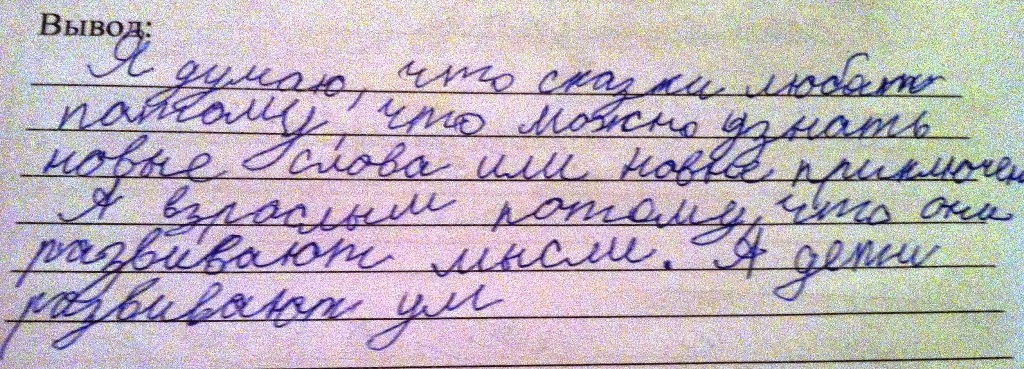 Вывод:
Я думаю, что сказки любят
патому, что можно узнать
новые слова или новые приключен
А взрослым потому, что они
развивают мысли. А дети
развивают ум